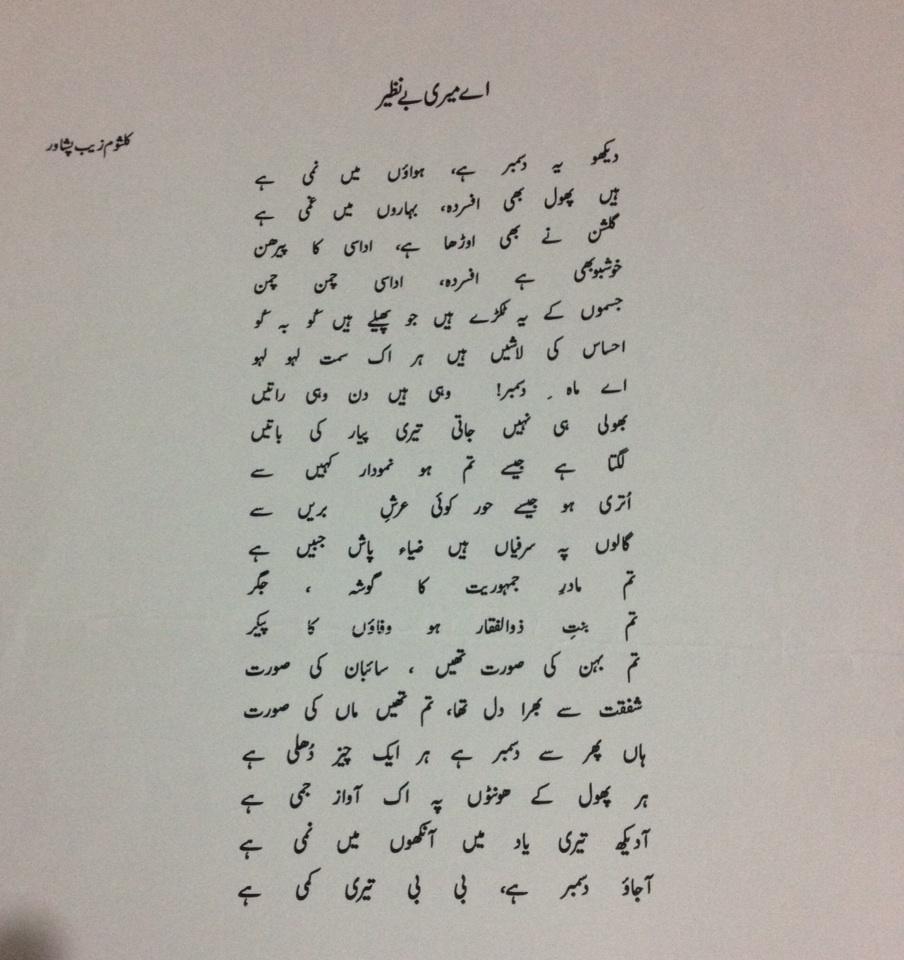 اے میری بے نظیر
کلثوم زیب پشاور
دیکھو یہ دسمبر ہے، ہواؤں میں نمی ہے
ہیں پھول بھی افسردہ، بہاروں میں غمی ہے
گلشن نے بھی اوڑھا ہے، اداسی کا پیرھن
خوشبو بھی ہے افسردہ، اداسی چمن چمن
جسموں کے یہ ٹکڑے ہیں جو پھیلے ہیں کُو بہ کُو
احساس کی لاشیں ہیں ہر اک سمت لہو لہو
اے ماہ ِ دسمبر! وہی ہیں دن وہی راتیں
بھولی ہی نہیں جاتی تیری پیار کی باتیں
لگتا ہے جیسے تم ہو نمودار کہیں سے
اُتری ہو جیسے حور کوئی عرشِ بریں سے
گالوں پہ سرفیاں ہیں ضیاء پاش جبیں ہے
تم مادرِ جمہوریت کا گوشہ ، جگر
تم بنتِ ذوالفقار ہو وفاؤں کا پیکر
تم بہن کی صورت تھیں ، سائبان کی صورت
شفقت سے بھرا دل تھا، تم تھیں ماں کی صورت
ہاں پھر سے دسمبر ہے ہر ایک چیز دُھلی ہے
ہر پھول کے ھونٹوں پہ اک آواز جمی ہے
آدیکھ تیری یاد میں آنکھوں میں نمی ہے
آجاؤ دسمبر ہے، بی بی تیری کمی ہے